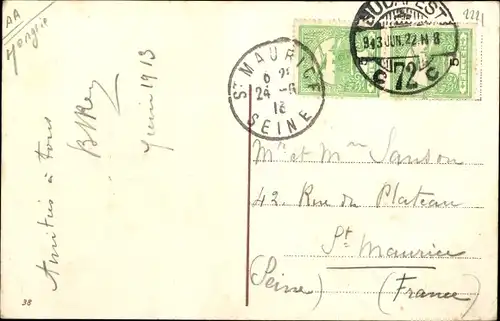 AA
Hongrie
2221
BUDAPEST
913 JUN. 22
72
5
5
ST MAURICE
24 -6
13
SEINE
Amitiés à tous
juin 1913
Mr et Mme Sanson
42. Rue du Plateau
St Maurice
(Seine) (France)
38